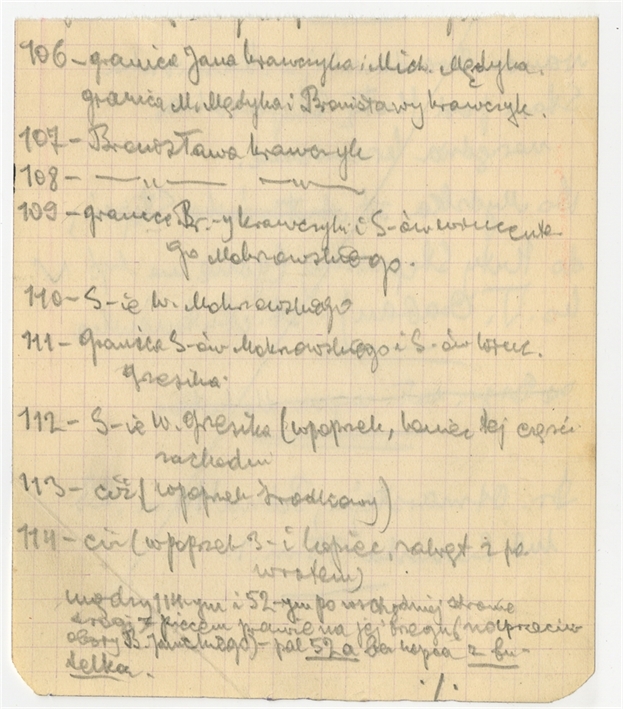 106 – granica Jana Krawczyka i Mich. Mędyka.
granica M. Mędyka i Bronisławy Krawczyk.
107 – Bronisława Krawczyk
108 – —〃— —〃—
109 – granica Br.-y Krawczyk i S-ów Wincente
go Mokrzowskiego.
110 – S-ie W. Mokrzowskiego
111 – granica S-ów Mokrzowskiego i S-ów Winc.
Grzesika.
112 – S-ie W. Grzesika (w poprzek, koniec tej części
zachodn
113 – ciż (w poprzek środkowy)
114 – ciż (w poprzek 3-i kopiec, zakręt z po
wrotem)
między 114-ym i 52-ym po wschodniej stronie
drogi z kopcem prawie na jej brzegu (naprzeciw
obory B. ) – pal 52a bez kopca z bu-
telka.
./.